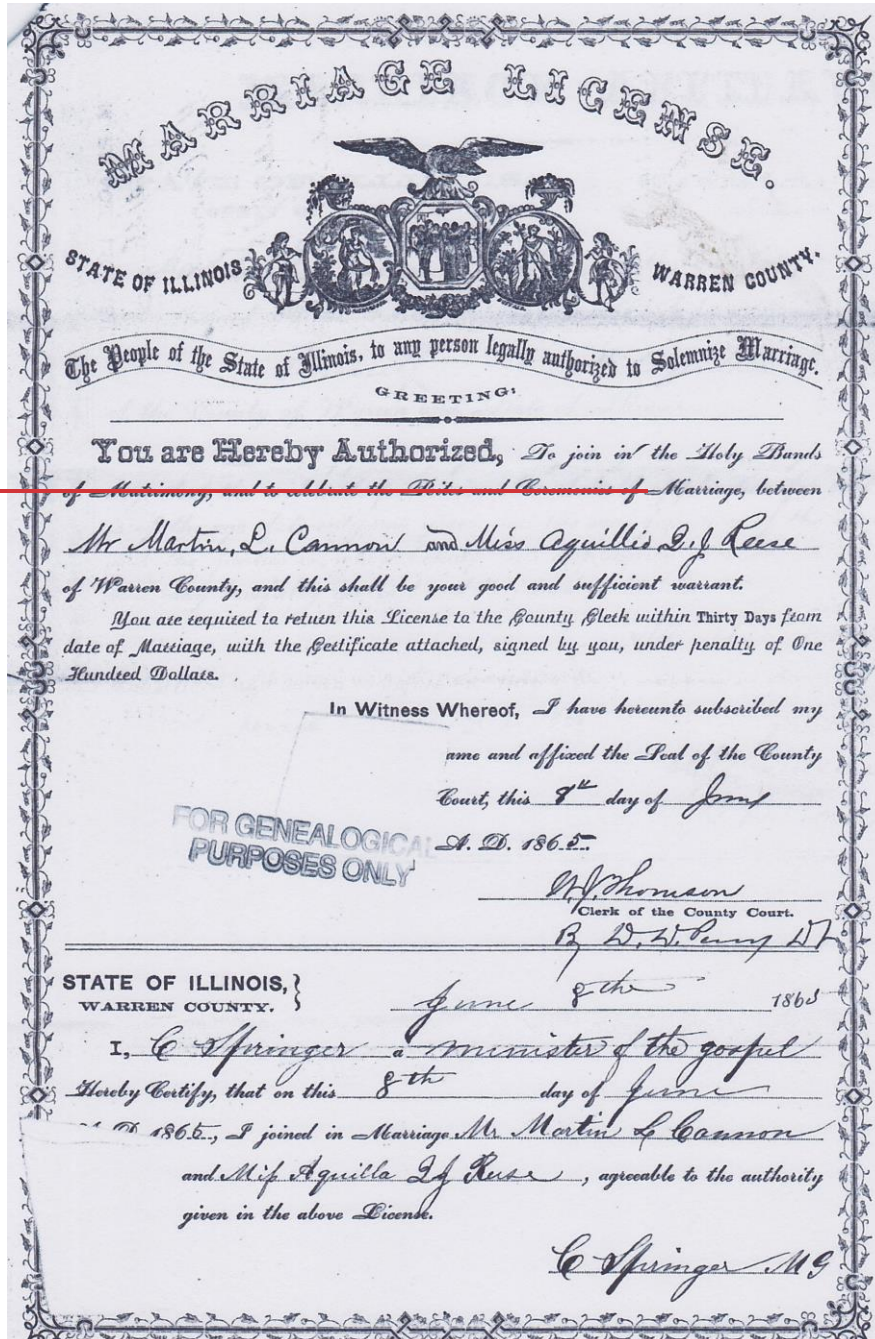 MARRIAGE LICENSE.
STATE OF ILLINOIS WARREN COUNTY.
The People of the State of Illinois, to any person legally authorized to Solemnize Marriage.
GREETING:
You are Hereby Authorized, To join in the Holy Bands
of Matrimony, and to celebrate the Rites and Ceremonies of Marriage, between
Mr Martin, L. Cannon and Miss Aquillis Q. J. Reese
of Warren County, and this shall be your good and sufficient warrant.
You are required to return this License to the County Clerk within Thirty Days from
date of Marriage, with the Certificate attached, signed by you, under penalty of One
Hundred Dollars.
In Witness Whereof, I have hereunto subscribed my
ame and affixed the Seal of the County
Court, this 8th day of June
A. D. 1865
FOR GENEALOGICAL
PURPOSES ONLY
W. J. Thomson
Clerk of the County Court.
By D. W.
STATE OF ILLINOIS,
WARREN COUNTY.
June 8th 1865
I, C Springer a minister of the gospel
Hereby Certify, that on this 8th day of June
A. D. 1865, I joined in Marriage Mr Martin L Cannon
and Miss Aquilla Q J Reese, agreeable to the authority
given in the above License.
C Springer MG